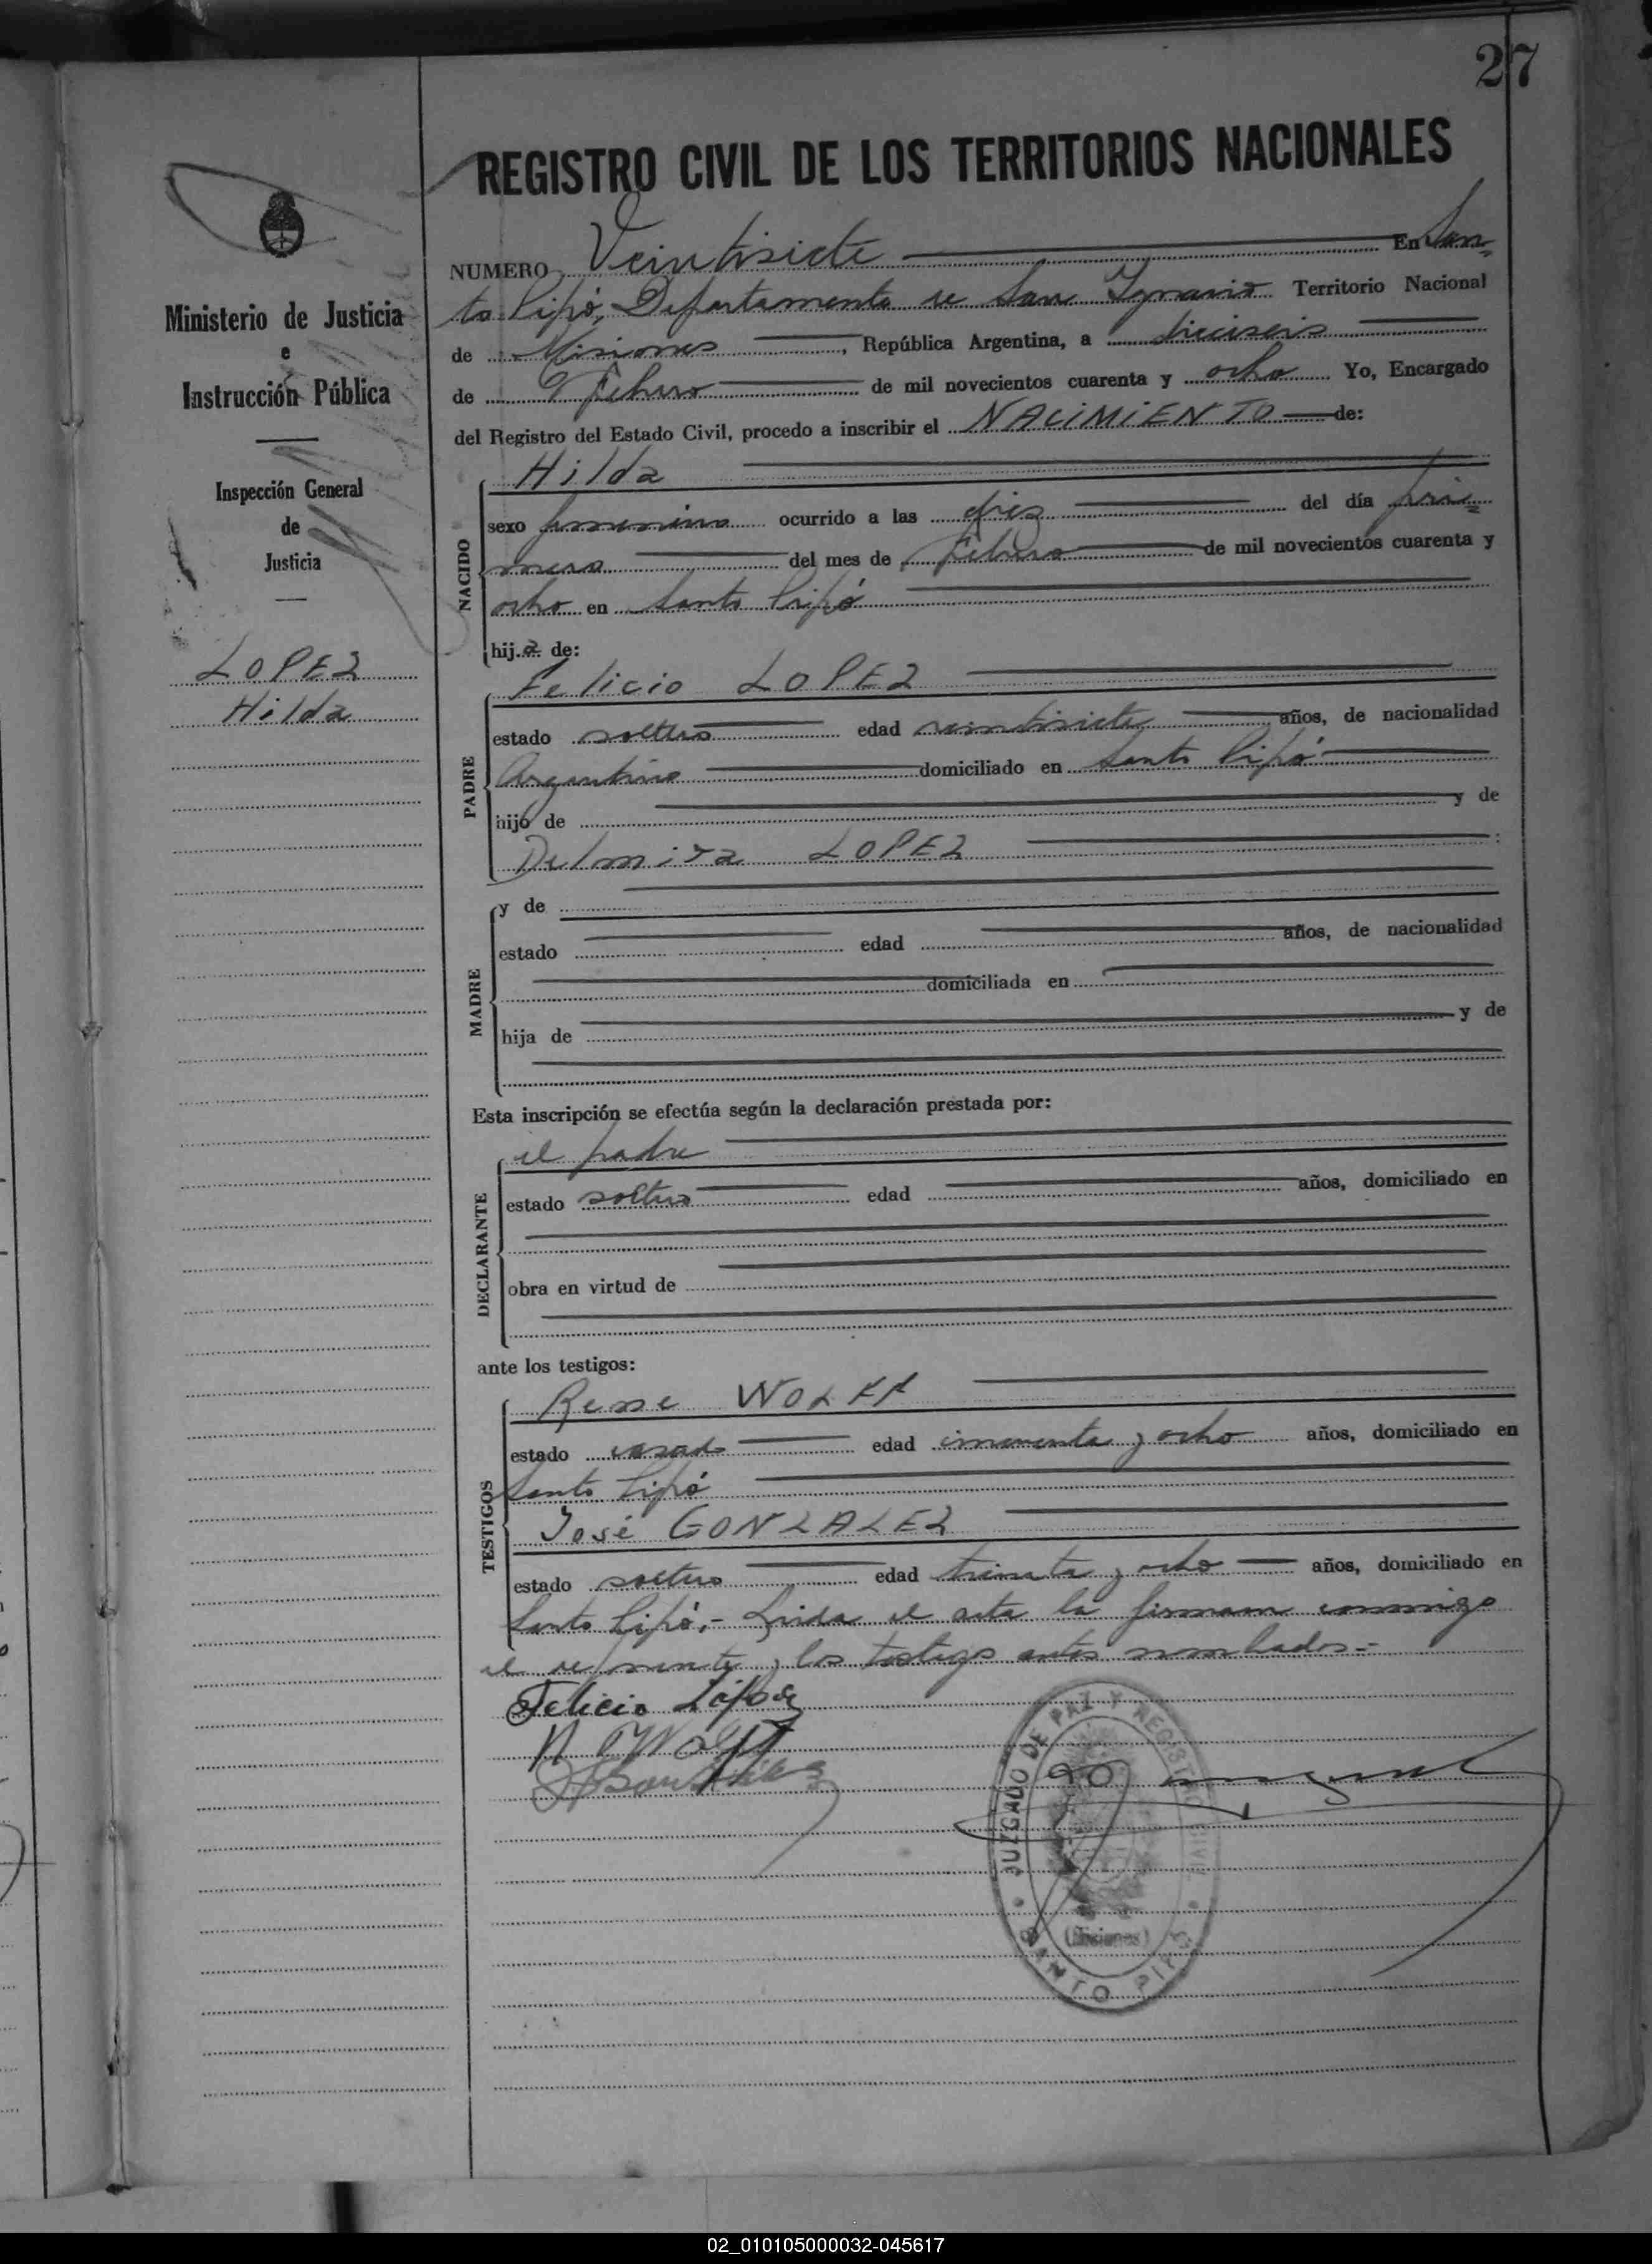 27
REGISTRO CIVIL DE LOS TERRITORIOS NACIONALES
Ministerio de Justicia
e
Instrucción Pública
Inspección General
de
Justicia
LOPEZ
Hilda
NUMERO Veintisiete En San-
to Pipó, Departamento de San Ignacio Territorio Nacional
de Misiones, República Argentina, a dieciseis
de Febrero de mil novecientos cuarenta y ocho Yo, Encargado
del Registro del Estado Civil, procedo a inscribir el NACIMIENTO de:
NACIDO
Hilda
sexo femenino ocurrido a las diez del día pri=
mero del mes de Febrero de mil novecientos cuarenta y
ocho en Santo Pipó
hij.a de:
PADRE
Felicio LOPEZ
estado soltero edad veintisiete años, de nacionalidad
Argentino domiciliado en Santo Pipó
hijo de y de
Delmira LOPEZ
MADRE
y de
estado edad años, de nacionalidad
domiciliada en
hija de y de
Esta inscripción se efectúa según la declaración prestada por:
DECLARANTE
el padre
estado soltero edad años, domiciliado en
obra en virtud de
ante los testigos:
TESTIGOS
Rene WOLFF
estado casado edad cincuenta y ocho años, domiciliado en
Santo Pipó
José GONZALEZ
estado soltero edad treinta y ocho años, domiciliado en
Santo Pipó.- Leida el acta la firman conmigo
el deponente y los testigos antes nombrados.-
Felicio López
Wolff
JUZGADO DE PAZ Y REGISTRO CIVIL
(Misiones)
SANTO PIPO
02_010105000032-045617